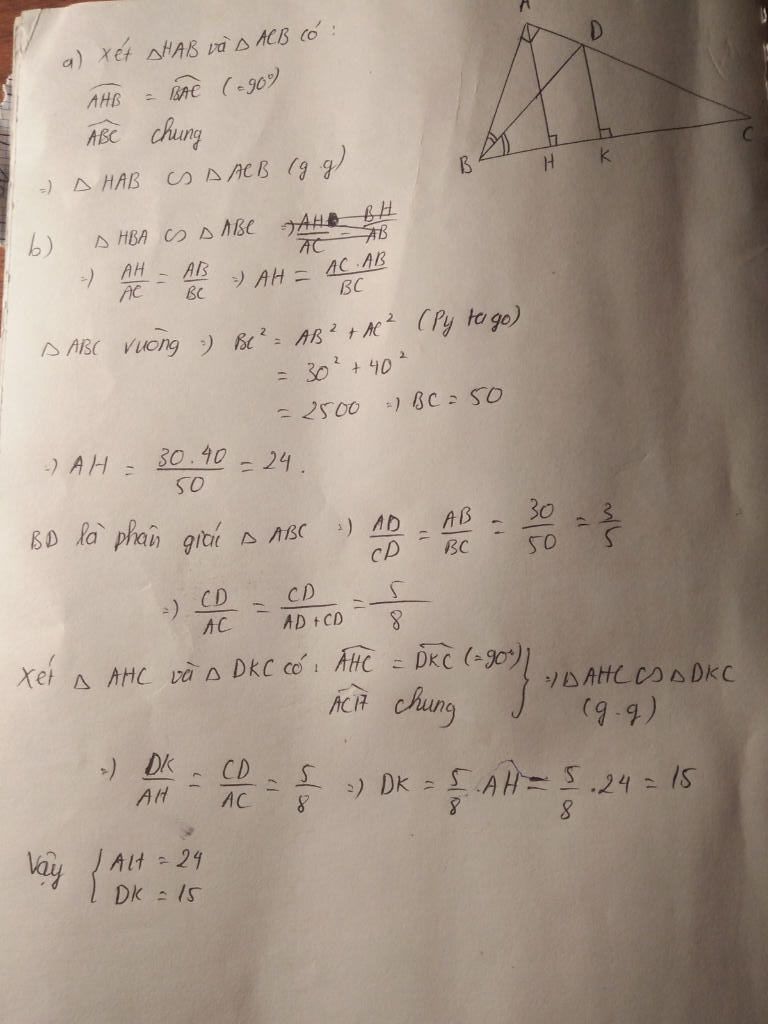 a) Xét △HAB và △ACB có :
AHB = BAC (=90°)
ABC chung
=) △ HAB ∽ △ACB (g.g)
b) △ HBA ∽ △ABC =) AH/AC = BH/AB
=) AH/AC = AB/BC =) AH = AC.AB/BC
△ABC vuông =) BC² = AB² + AC² (Py ta go)
= 30² + 40²
= 2500 =) BC = 50
=) AH = 30.40/50 = 24.
BD là phân giác △ ABC =) AD/CD = AB/BC = 30/50 = 3/5
=) CD/AC = CD/AD+CD = 5/8
Xét △ AHC và △ DKC có : AHC = DKC (=90°) } =) △AHC ∽ △DKC
ACH chung (g.g)
=) DK/AH = CD/AC = 5/8 =) DK = 5/8 .AH = 5/8 .24 = 15
Vậy { AH = 24
DK = 15
A
D
B
H
K
C